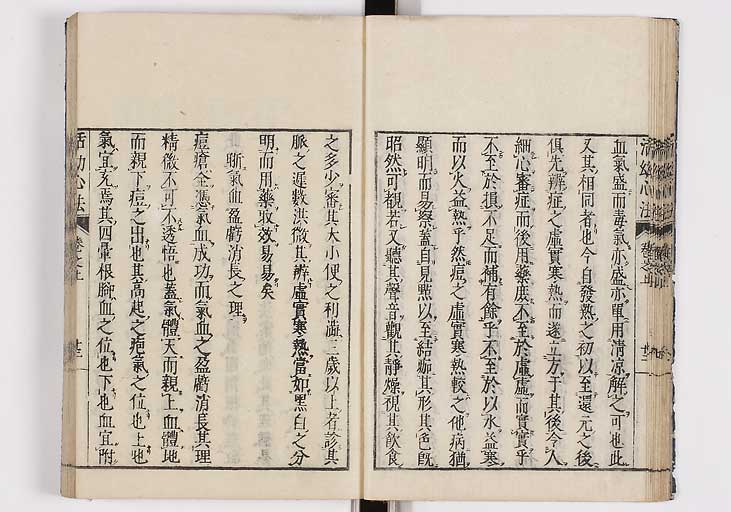 血氣盛而毒氣亦盛亦單用清凉解之可也此
又其相同者也今自發熱之初以至還元之後
俱先辨症之虛實寒熱而遂立方于其後令人
細心審症而後用藥庶不至於虛虛而實實乎
不至於損不足而補有餘乎不至於以水益寒
而以火益熱乎然痘之虛實寒熱較之他病猶
顯明而易察蓋自見㸃以至結痂其形其色旣
昭然可觀若又聽其聲音觀其靜燥視其飲食
之多少審其大小便之利澁三歲以上者診其
脈之遲數洪微其辨虛實寒熱當如黑白之分
明而用藥取效易易矣
斷氣血盈虧消長之理
痘瘡全憑氣血成功而氣血之盈虧消長其理
精微不可不透悟也蓋氣體天而親上血體地
而親下痘之出也其高起之疱氣之位也上也
氣宜充焉其四暈根脚血之位也下也血宜附
活幼心法
卷之上
廿三